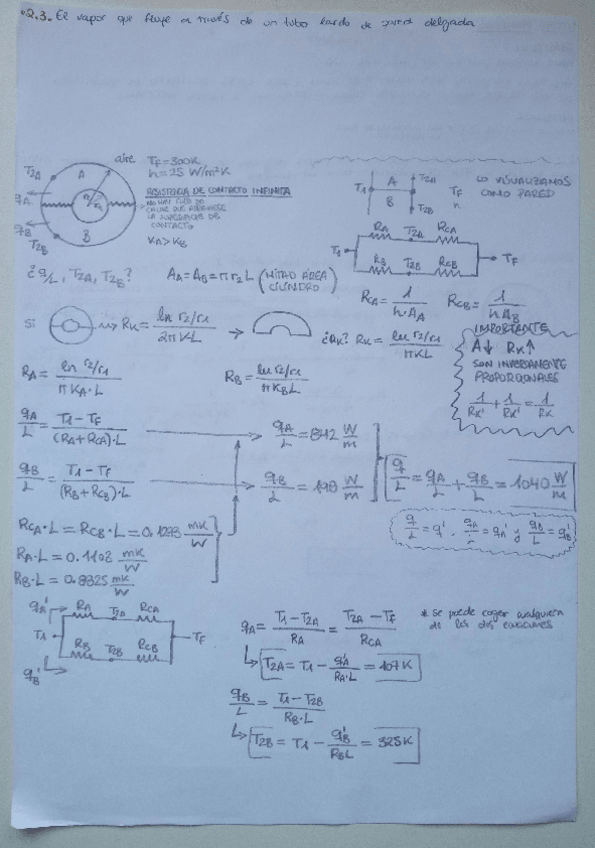 2.3. El vapor que fluye a través de un tubo largo de pared delgada
aire
TF=300K
h=25 W/m²K
RESISTENCIA DE CONTACTO INFINITA
NO HAY FLUJO DE
CALOR QUE ATRAVIESE
LA SUPERFICIE DE
CONTACTO
KA>KB
T2A
A
qA
qB
B
T2B
T1
A
B
T2A
T2B
TF
h
LO VISUALIZAMOS
COMO PARED
RA
T2A
RCA
T1
TF
RB
T2B
RCB
¿q/L, T2A, T2B?
AA=AB=πr2L (MITAD ÁREA
CILINDRO)
RCA= 1/h·AA
RCB= 1/hAB
Si
RK= ln r2/r1 / 2πKL
¿RK? RK= ln r2/r1 / πKL
IMPORTANTE
A↓ RK↑
SON INVERSAMENTE
PROPORCIONALES
1/RK' + 1/RK' = 1/RK
RA= ln r2/r1 / πKA·L
RB= ln r2/r1 / πKBL
qA/L = T1-TF / (RA+RCA)·L
qA/L = 842 W/m
qB/L = T1-TF / (RB+RCB)·L
qB/L = 198 W/m
q/L = qA/L + qB/L = 1040 W/m
q/L = q', qA/L = qA' y qB/L = qB'
RCA·L = RCB·L = 0.1273 mK/W
RA·L = 0.1103 mK/W
RB·L = 0.8825 mK/W
qA'
RA
T2A
RCA
T1
TF
RB
T2B
RCB
qB'
qA= T1-T2A / RA = T2A-TF / RCA
* se puede coger cualquiera
de las dos ecuaciones
T2A= T1 - qA'/RA·L = 407K
qB/L = T1-T2B / RB·L
T2B = T1 - qB'/RBL = 325K